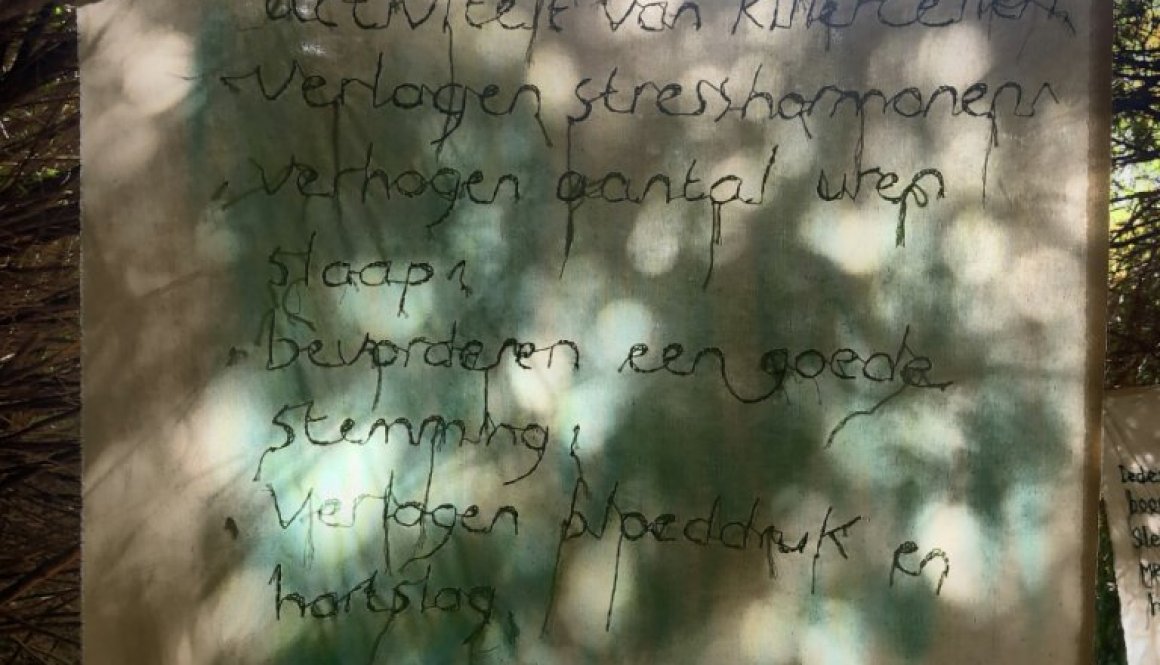 activiteit van killercellen,
Verlagen stresshormonen,
verhogen aantal uren
slaap,
bevorderen een goede
stemming,
Verlagen bloeddruk en
hartslag,